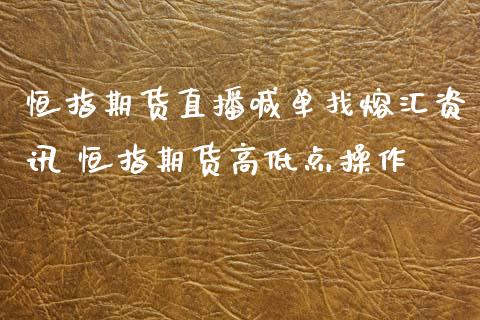 恒指期货直播喊单找熔汇资
讯 恒指期货高低点操作